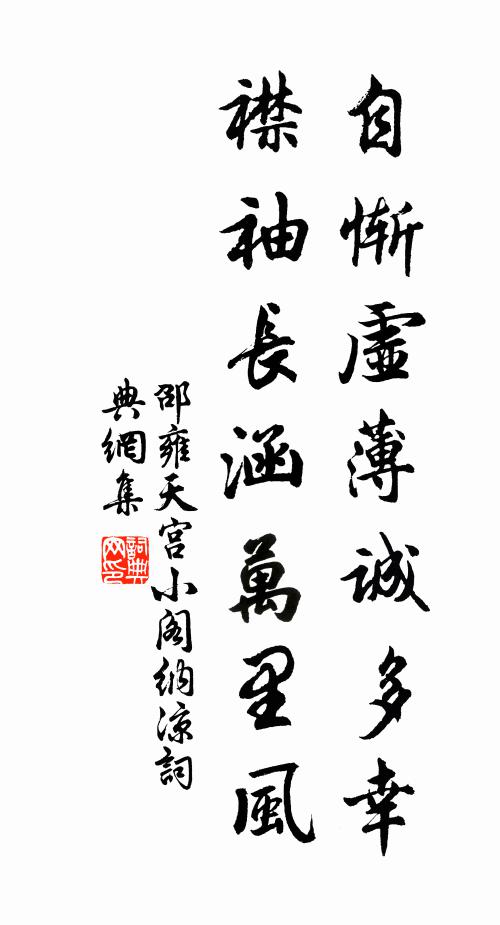 自慚虛薄誠多幸
襟袖長涵萬里風
邵雍天宮小閣納涼詞
典網集
詞典
网印